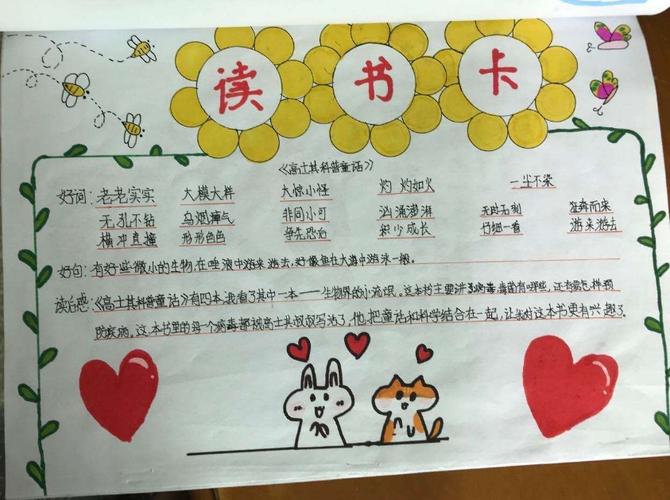 读书卡
《高士其科普童话》
好词：老老实实 大模大样 大惊小怪 灼灼如火 一尘不染
无孔不钻 乌烟瘴气 非同小可 汹涌澎湃 无时无刻
横冲直撞 形形色色 争先恐后 积少成长 仔细一看 游来游去
好句：有好些微小的生物，在唾液中游来游去，好像鱼在大海中游泳一般。
读后感：《高士其科普童话》有四本，我看了其中一本——生物界的小流氓。这本书主要讲了病毒、细菌有哪些，还有怎样预
防疾病。这本书里的每个病毒都被高士其叔叔写活了，他把童话和科学结合在一起，让我对这本书更有兴趣了。